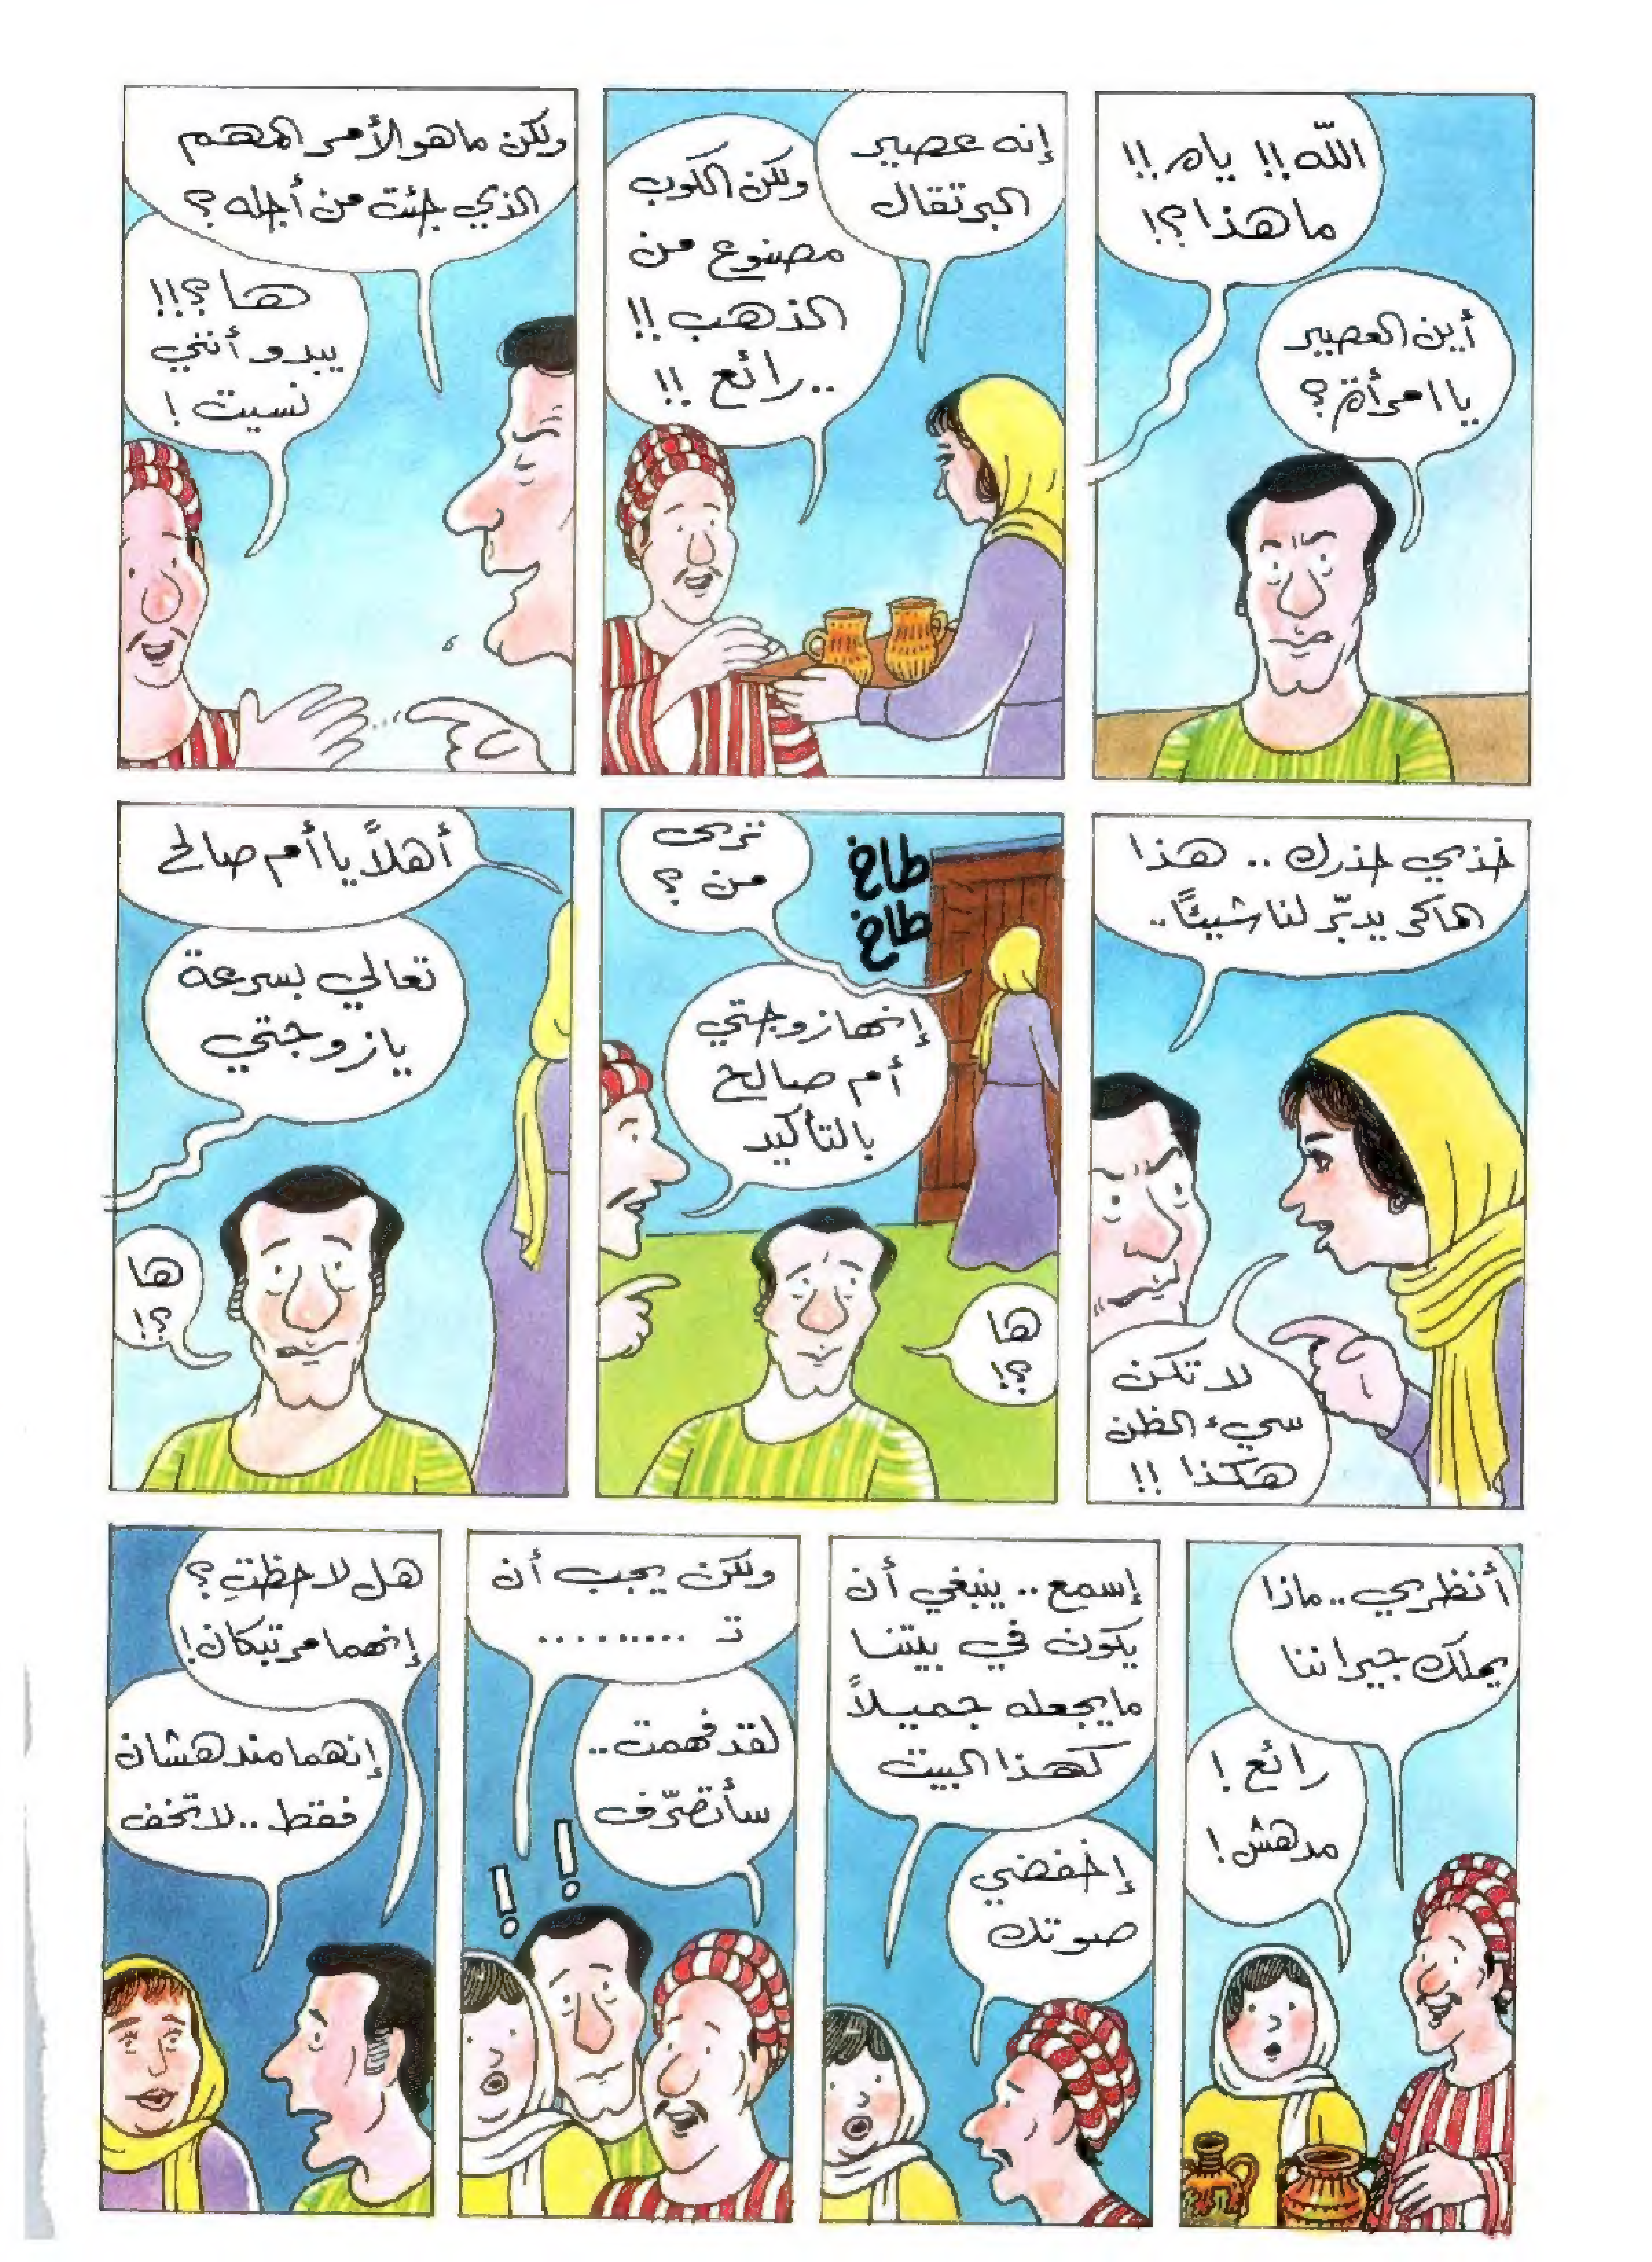 الله!! ياه!!
ما هذا؟!
أين العصير
يا امرأة؟
إنه عصير
البرتقال
ولكن الكوب
مصنوع من
الذهب!!
..رائع!!
ولكن ما هو الأمر المهم
الذي جئت من أجله؟
ها؟!!
يبدو أنني
نسيت!
خذي حذرك.. هذا
ماكر يدبّر لنا شيئًا..
لا تكن
سيء الظن
هكذا!!
طاخ
طاخ
ترى
من؟
إنها زوجتي
أم صالح
بالتأكيد
ها
؟!
أهلاً يا أم صالح
تعالي بسرعة
يا زوجتي
ها
؟!
أنظري.. ماذا
يملك جيراننا
رائع!
مدهش!
إسمع.. ينبغي أن
يكون في بيتنا
ما يجعله جميلاً
كهذا البيت
إخفضي
صوتك
ولكن يجب أن
تـ .........
لقد فهمت..
سأتصرّف
! !
هل لاحظتِ؟
إنهما مرتبكان!
إنهما مندهشان
فقط.. لا تخف